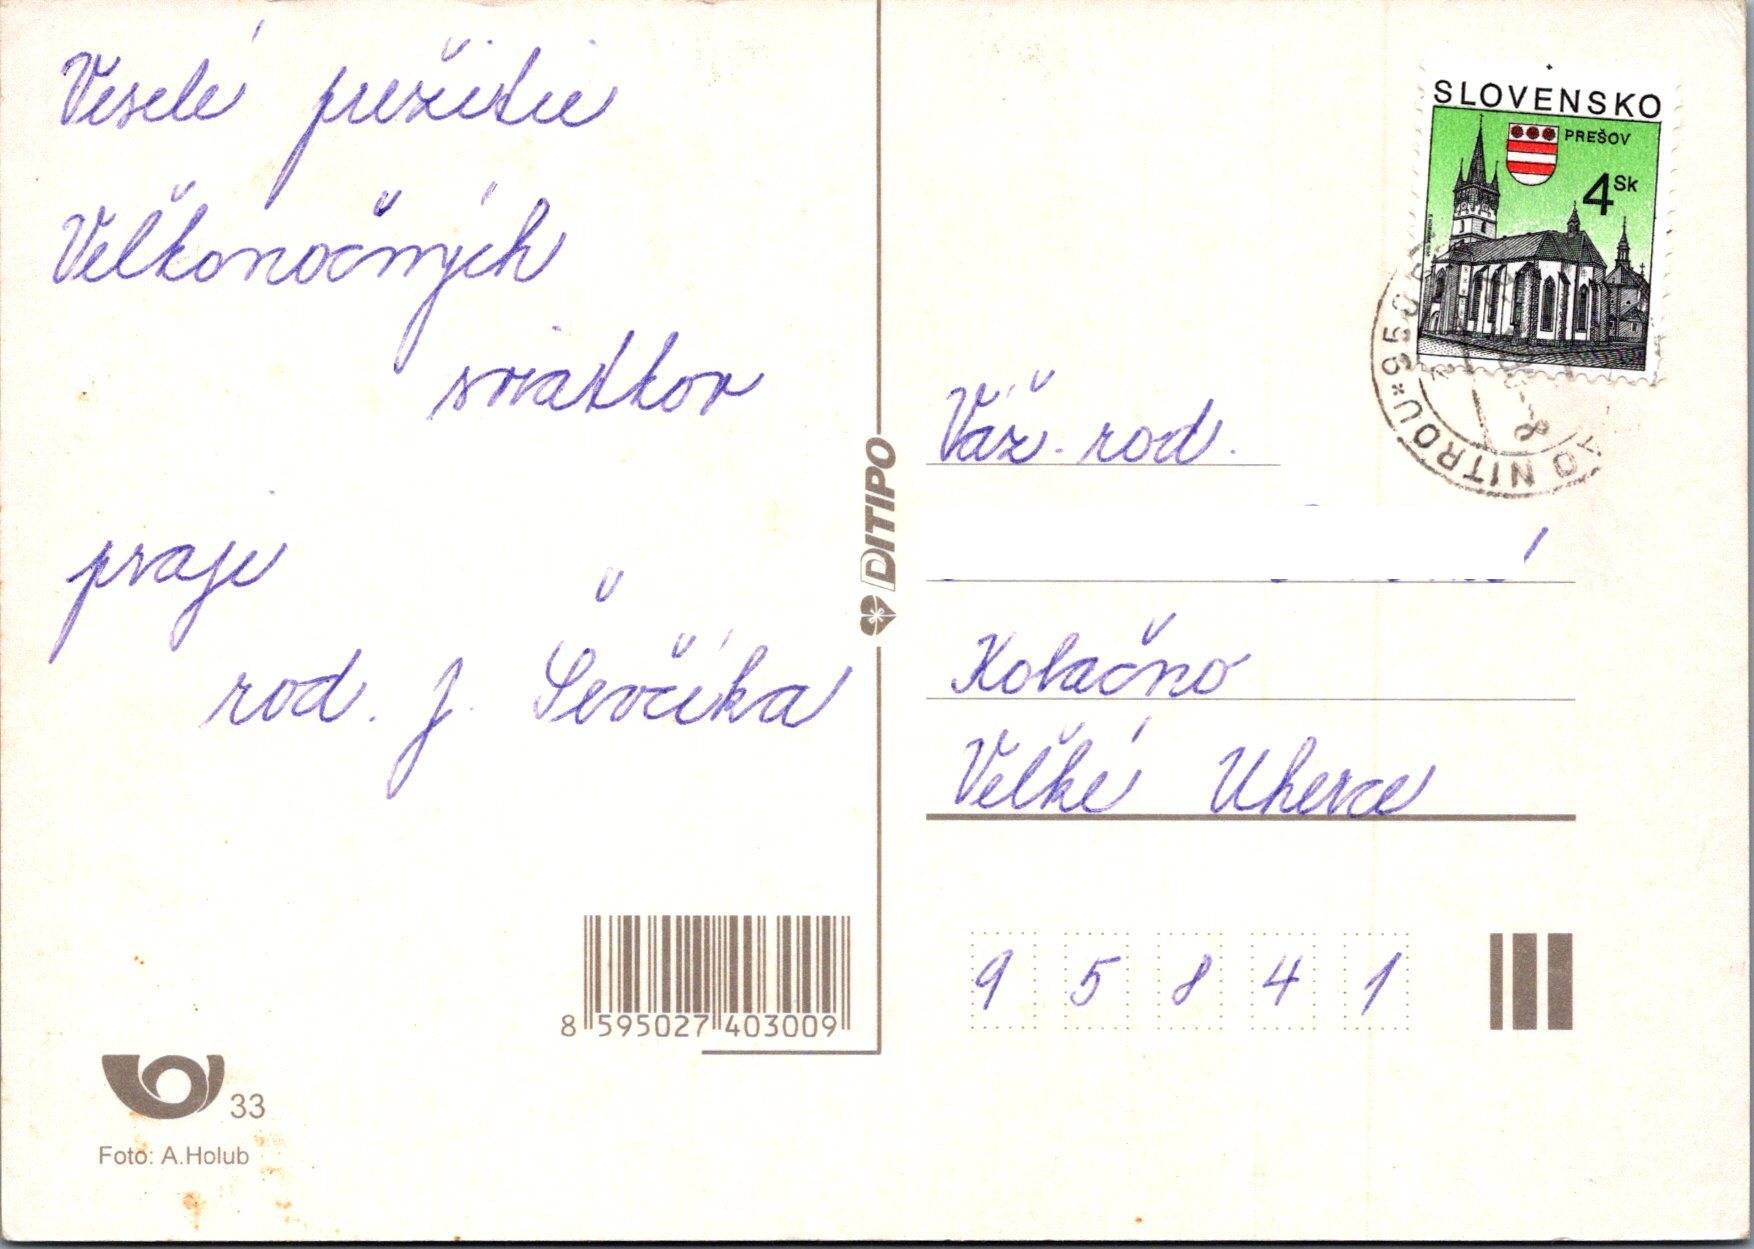 Veselé prežitie
Veľkonočných
sviatkov
praje
rod. J. Ševčíka
8 595027 403009
33
Foto: A.Holub
DITIPO
SLOVENSKO
PREŠOV
4 Sk
NITROU * 950
Váž. rod.
Kolačno
Veľké Uherce
9 5 8 4 1